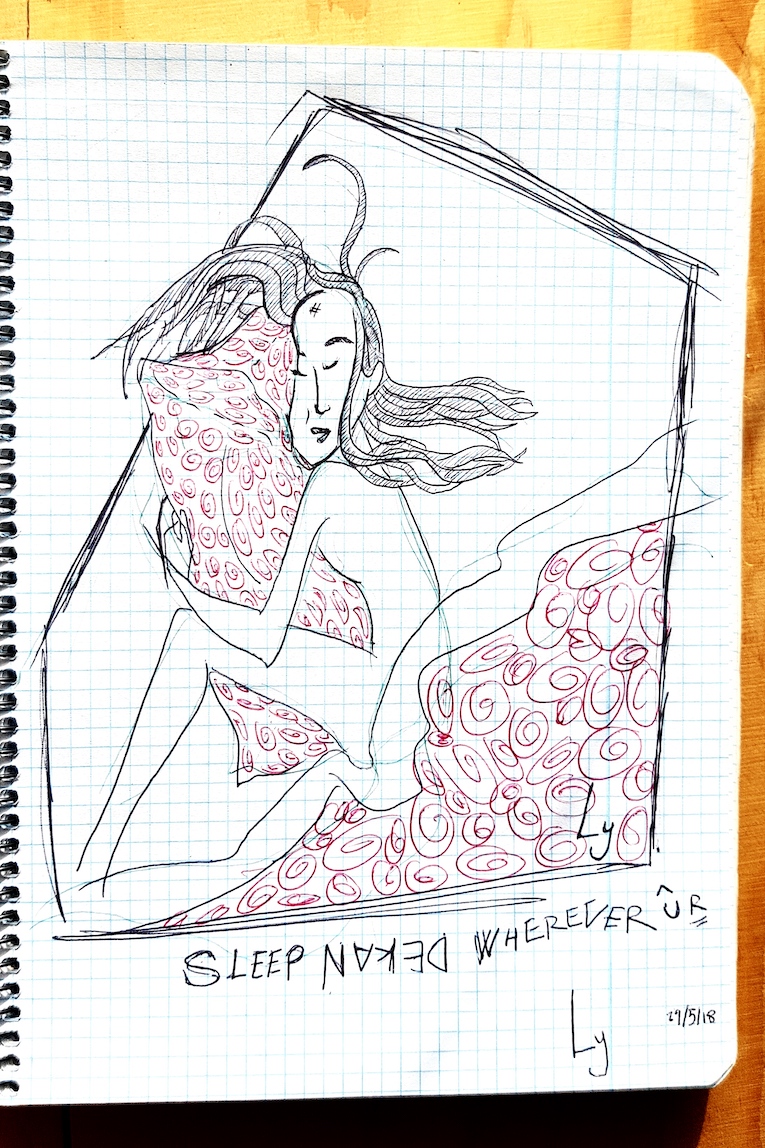 Ly
SLEEP NAKED WHEREVER ÛR
29/5/18
Ly